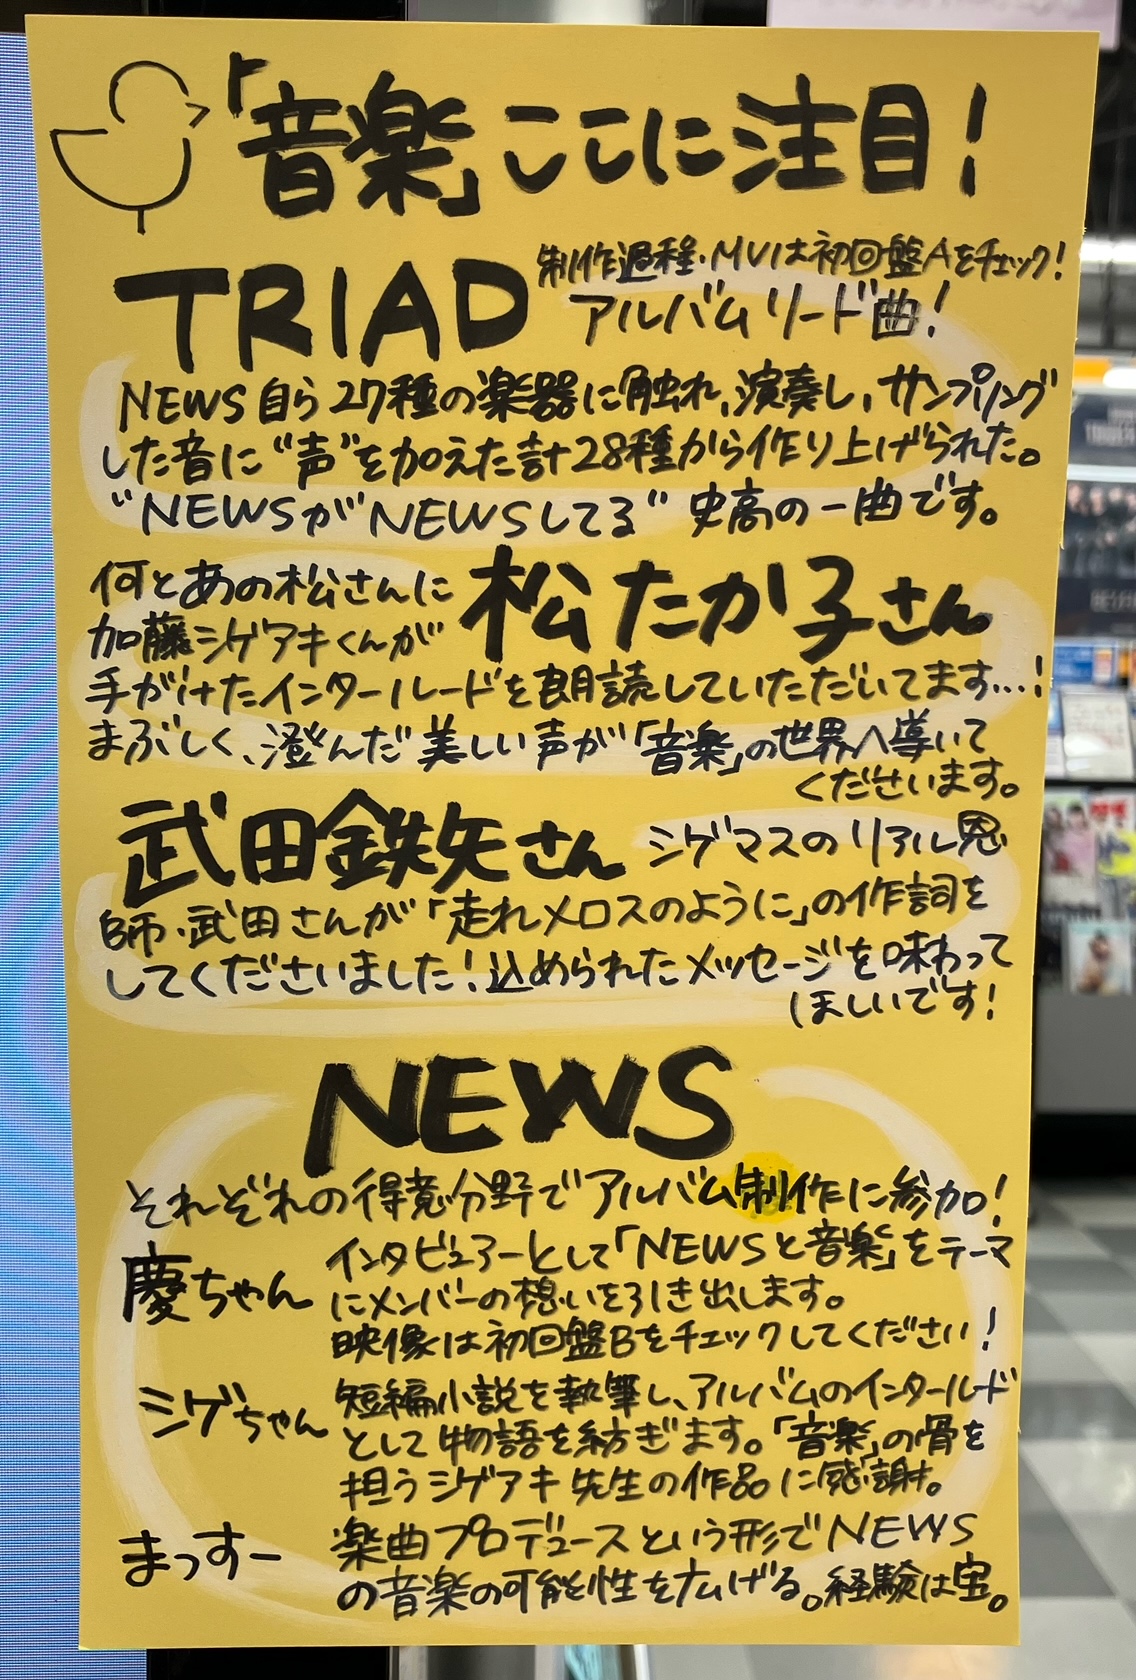 「音楽」ここに注目！
TRIAD
制作過程・MVは初回盤Aをチェック！
アルバムリード曲！
NEWS自ら27種の楽器に触れ、演奏し、サンプリング
した音に“声”を加えた計28種から作り上げられた。
“NEWSが”NEWSしてる” 史高の一曲です。
何とあの松さんに
松たか子さん
加藤シゲアキくんが
手がけたインタールードを朗読していただいてます…！
まぶしく、澄んだ美しい声が「音楽」の世界へ導いて
くださいます。
武田鉄矢さん
シゲマスのリアル恩
師・武田さんが「走れメロスのように」の作詞を
してくださいました！込められたメッセージを味わって
ほしいです！
NEWS
それぞれの得意分野でアルバム制作に参加！
慶ちゃん
インタビュアーとして「NEWSと音楽」をテーマ
にメンバーの想いを引き出します。
映像は初回盤Bをチェックしてください！
シゲちゃん
短編小説を執筆し、アルバムのインタールード
として物語を紡ぎます。「音楽」の骨を
担うシゲアキ先生の作品に感謝。
まっすー
楽曲プロデュースという形でNEWS
の音楽の可能性を広げる。経験は宝。